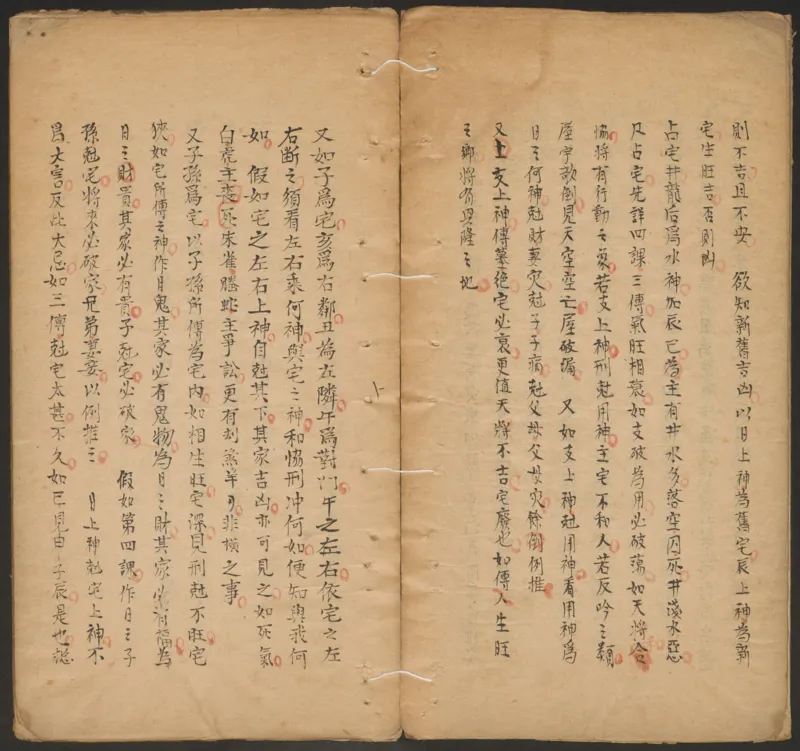 則不吉且不安 欲知新舊吉凶以日上神為舊宅辰上神為新
宅生旺吉否則凶
占宅井龍后爲水神加辰巳為主有井水多落空囚死井淺水惡
凡占宅先詳四課三傳氣旺相衰如支破為用必破蕩如天將合
恊將有行動之象若支上神刑尅用神主宅不和人若反吟之類
屋宇欹倒見天空空亡屋破漏 又如支上神尅用神看用神爲
日之何神尅財妻灾尅子子病尅父母父母灾餘倒例推
又上支上神傳墓絶宅必衰更值天將不吉宅廢也如傳入生旺
之鄉將有興隆之地
又如子爲宅亥爲右鄰丑為左隣午爲對门午之左右依宅之左
右断之須看左右乘何神與宅之神和恊刑冲何如便知與我何
如 假如宅之左右上神自尅其下其家吉凶亦可見之如死氣
白虎主喪死朱雀螣蛇主爭訟更有刦煞羊刃非横之事
又子孫爲宅以子孫所傳為宅内如相生旺宅深見刑尅不旺宅
狹如宅所傳之神作日鬼其家必有鬼物為日之財其家必有福為
日之財貴其家必有貴子尅宅必破家 假如第四課作日之子
孫尅宅將來必破家兄弟妻妾以例推之 日上神尅宅上神不
昌大害反此大忌如三傳尅宅太甚不久如巳見申子辰是也